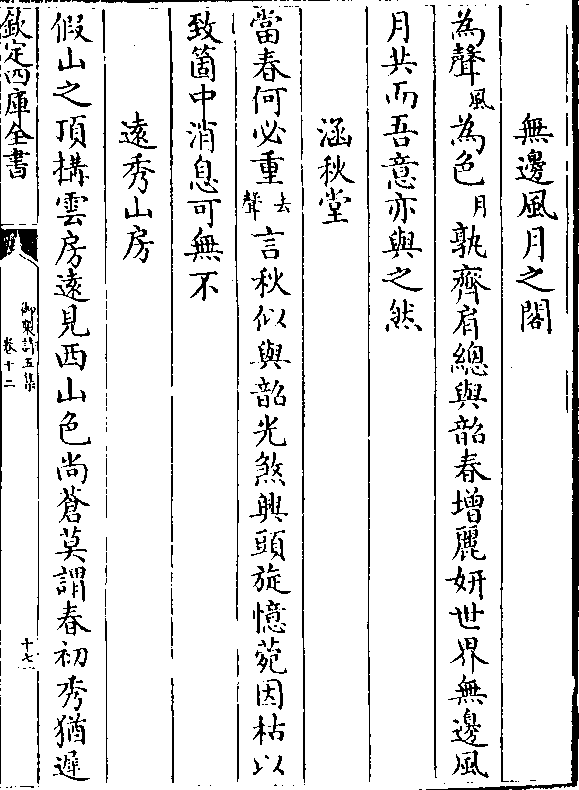 無邊風月之閣
為聲風為色月孰齊肩總與韶春增麗妍世界無邊風
月共而吾意亦與之然
涵秋堂
當春何必重去聲言秋似與韶光煞興頭旋憶菀因枯以
致箇中消息可無不
遠秀山房
假山之頂構雲房遠見西山色尚蒼莫謂春初秀猶遲
欽定四庫全書
御製詩五集
卷十二
十七